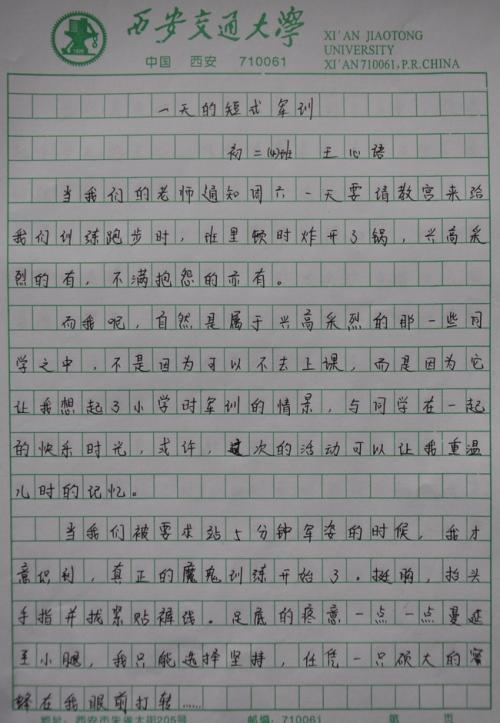 西安交通大学
中国 西安 710061
XI'AN JIAOTONG
UNIVERSITY
XI'AN 710061, P.R.CHINA
一天的短式军训
初二(4)班 王心语
当我们的老师通知周六一天要请教官来给
我们训练跑步时，班里顿时炸开了锅，兴高采
烈的有，不满抱怨的亦有。
而我呢，自然是属于兴高采烈的那一些同
学之中，不是因为可以不去上课，而是因为它
让我想起了小学时军训的情景，与同学在一起
的快乐时光，或许，这次的活动可以让我重温
儿时的记忆。
当我们被要求站5分钟军姿的时候，我才
意识到，真正的魔鬼训练开始了。挺胸，抬头
手指并拢紧贴裤线。足底的疼意一点一点蔓延
至小腿，我只能选择坚持，任凭一只硕大的蜜
蜂在我眼前打转……
地址：西安市朱雀大街205号 邮编：710061 第 页